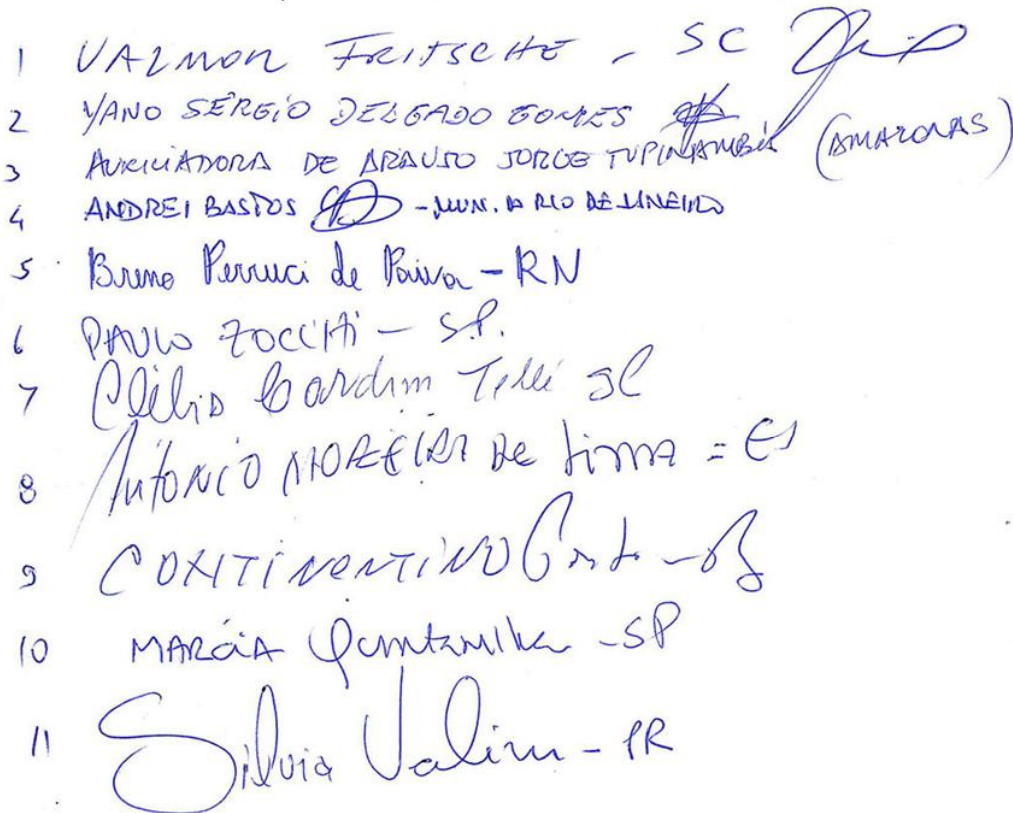 1 VALMOR FRITSCHE - SC
2 YANO SÉRGIO DELGADO GOMES
3 AUXILIADORA DE ARAUJO JORGE TUPINAMBÁ (AMAZONAS)
4 ANDREI BASTOS - MUN. D RIO DE JANEIRO
5 Breno Perruci de Paiva - RN
6 PAULO ZOCCHI - S.P.
7 Clélio Cardim Telli SC
8 Antonio MOREIRA De Lima = ES
9 CONTINENTINO Porto - RJ
10 MARCIA Quintanilha - SP
11 Silvia Valim - PR